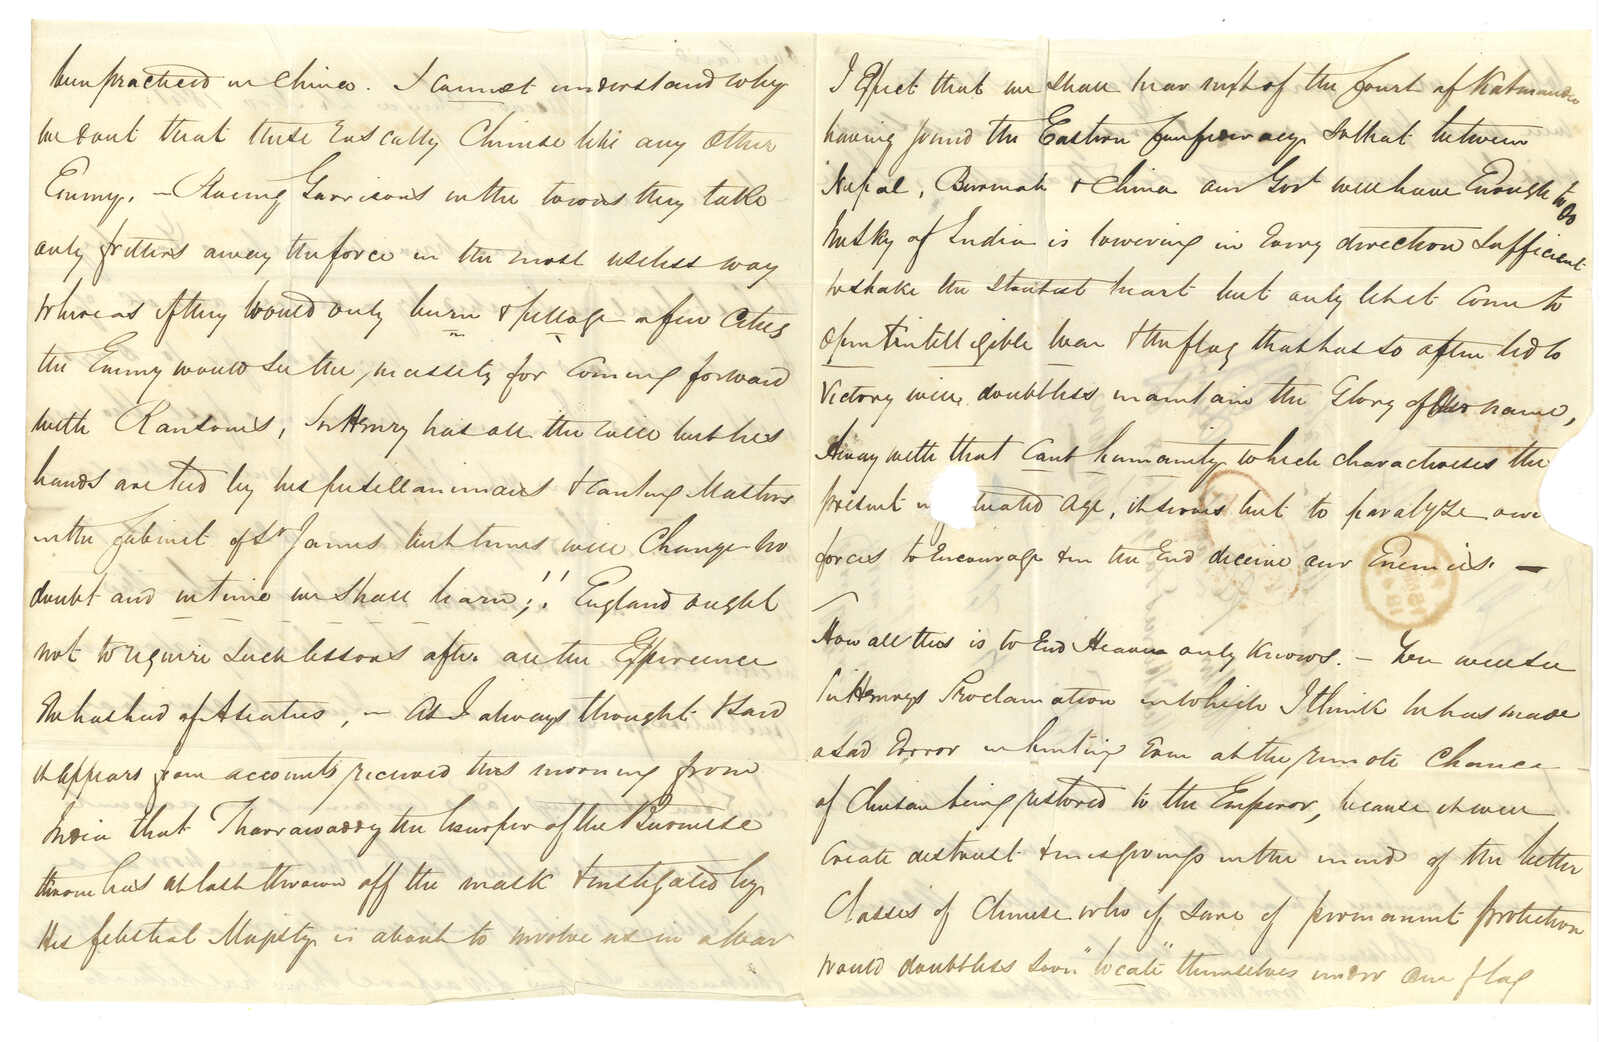 been practiced in China. I cannot understand why
we dont treat these rascally Chinese like any other
Enemy. — Placing Garrisons in the towns they take
only fritters away the force in the most useless way
whereas if they would only burn & pillage a few Cities
the Enemy would see the necessity for coming forward
with Ransoms, Sir Henry has all the will but his
hands are tied by his pusillanimous & canting Masters
in the Cabinet of St James but times will Change no
doubt and in time we shall learn;!! England ought
not to require such lessons after all the Experience
She has had of Asiatics, — As I always thought & said
it appears from accounts received this morning from
India that Tharrawaddy the Usurper of the Burmese
throne has at last thrown off the mask & instigated by
His Celestial Majesty is about to involve us in a War
I Expect that we shall hear next of the Court of Katmandoo
having joined the Eastern Confederacy So that between
Nepal, Burmah & China our Govt will have Enough to do
The sky of India is lowering in Every direction Sufficient
to shake the stoutest heart but only let it come to
open & intelligible War & the flag that has so often led to
Victory will doubtless maintain the Glory of Our name,
Away with that Cant humanity which characterises the
present age, it serves but to paralyze our
forces to Encourage & in the End deceive our Enemies. —
How all this is to End Heaven only knows. — You will see
Sir Henrys Proclamation in which I think he has made
a sad Error in hinting Even at the remote Chance
of Chusan being restored to the Emperor, because it will
create distrust & misgivings in the minds of the better
Classes of Chinese who if sure of permanent protection
would doubtless soon "locate" themselves under our flag